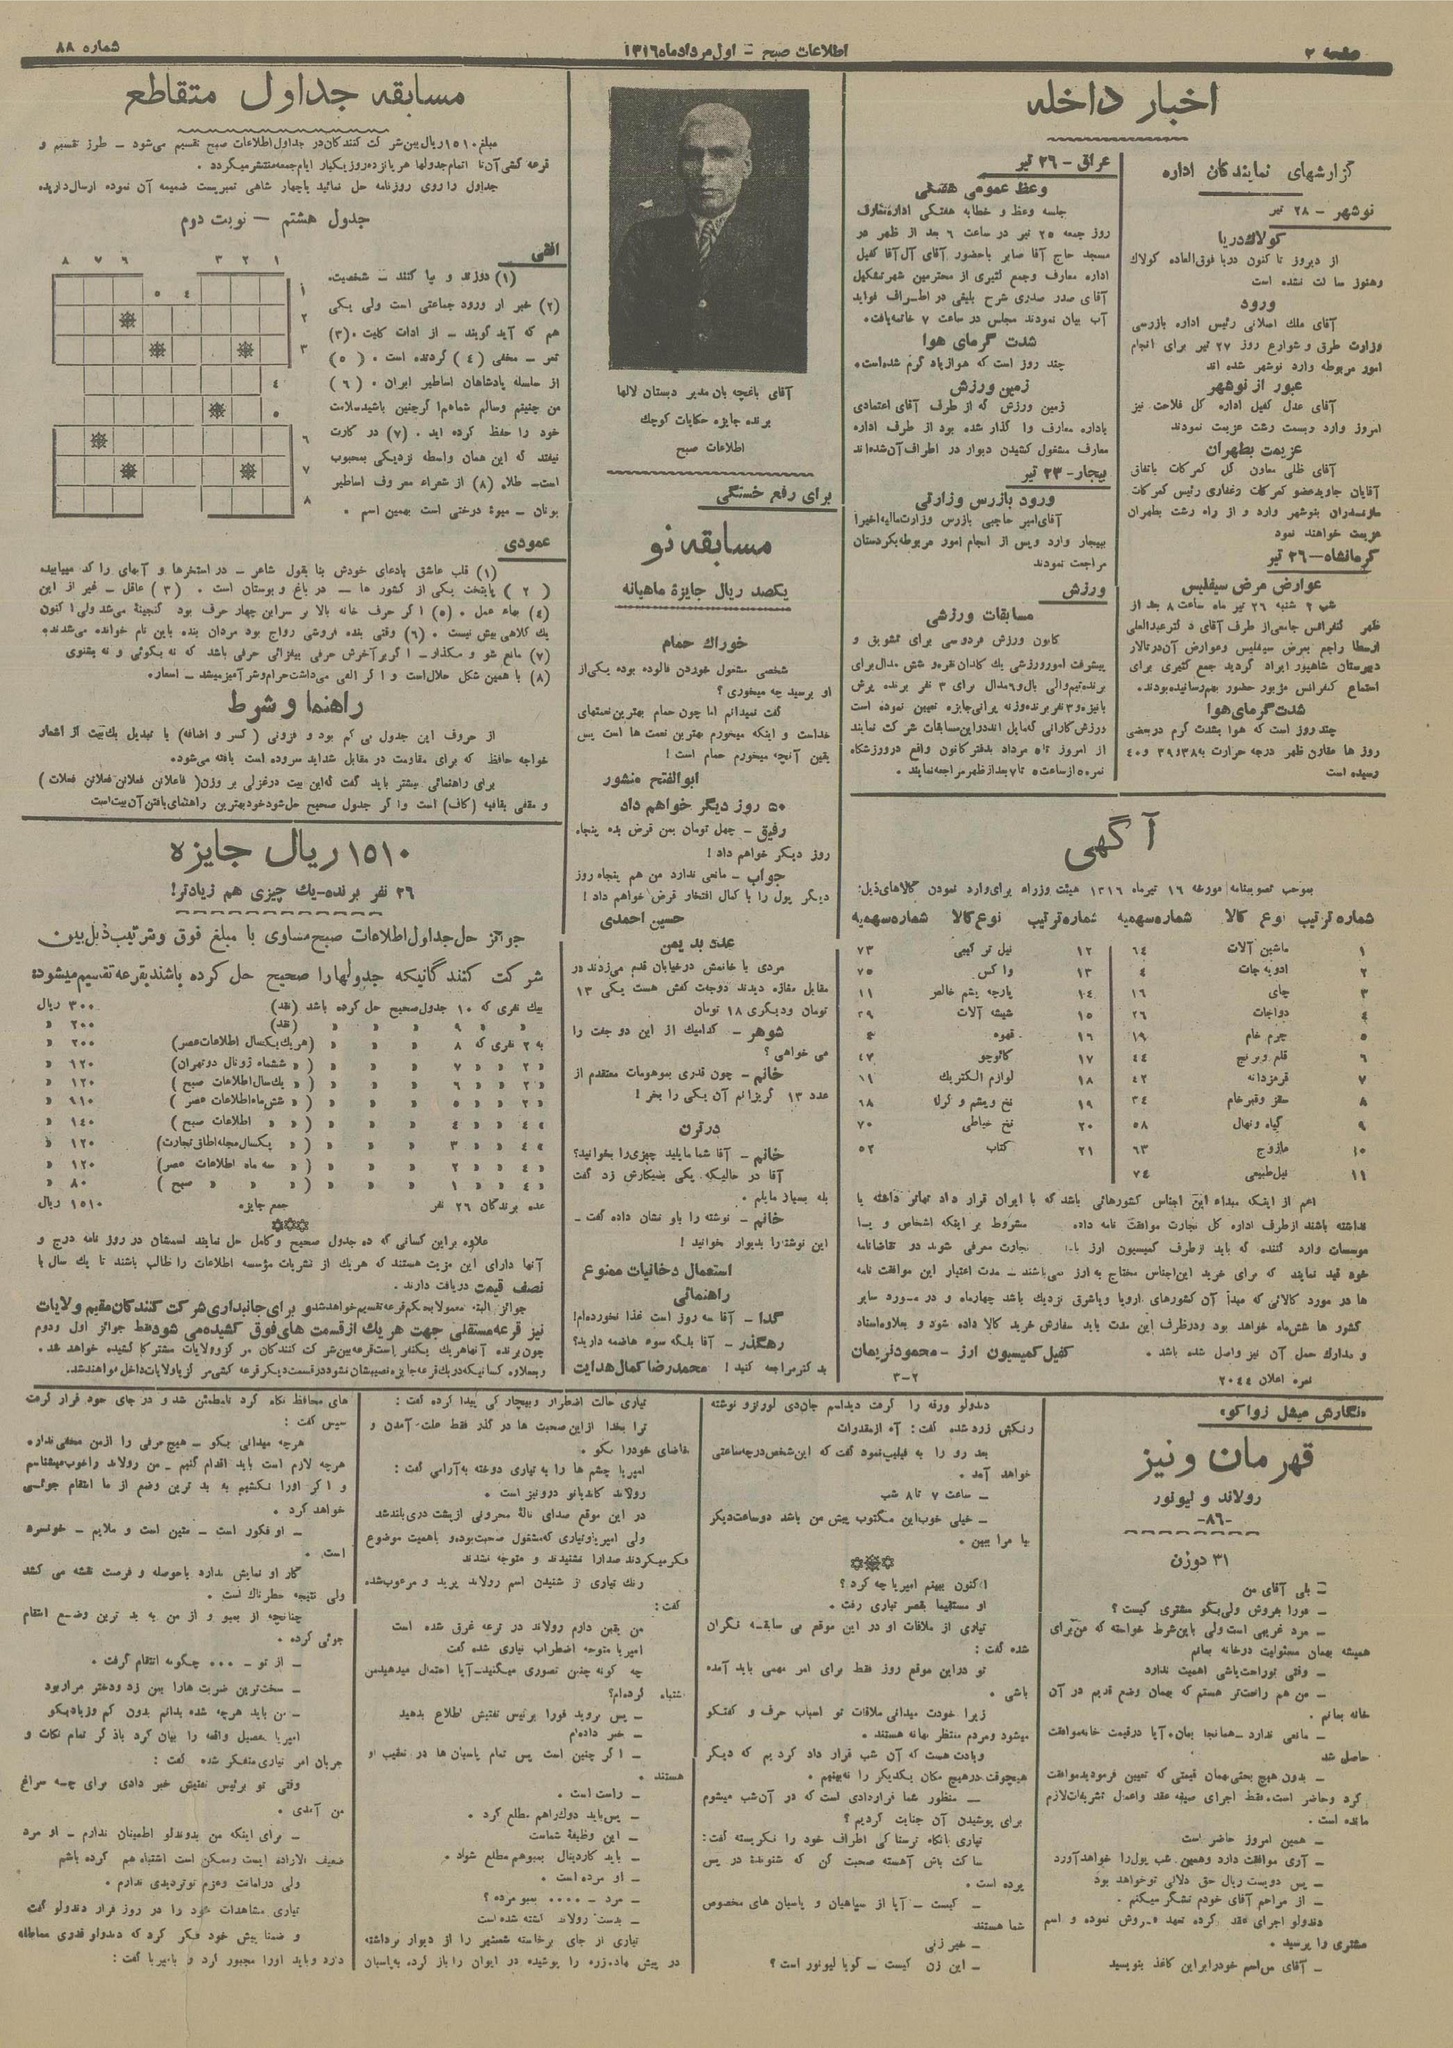 صفحه ۲
اطلاعات صبح - اول مرداد ماه ۱۳۱۶
شماره ۸۸
اخبار داخله
گزارشهای نمایندگان اداره
نوشهر - ۲۸ تیر
کولاك دریا
از دیروز تا کنون دریا فوق‌العاده کولاك
وهنوز ساکت نشده است
ورود
آقای ملك اصلانی رئیس اداره بازرسی
وزارت طرق و شوارع روز ۲۷ تیر برای انجام
امور مربوطه وارد نوشهر شده اند
عبور از نوشهر
آقای عدل کفیل اداره کل فلاحت نیز
امروز وارد وبسمت رشت عزیمت نمودند
عزیمت بطهران
آقای ظلی معاون کل گمرکات باتفاق
آقایان جاوید عضو گمرکات وغفاری رئیس گمرکات
مازندران بنوشهر وارد و از راه رشت بطهران
عزیمت خواهند نمود
کرمانشاه - ۲۶ تیر
عوارض مرض سیفلیس
شب ۲ شنبه ۲۶ تیر ماه ساعت ۸ بعد از
ظهر کنفرانس جامعی از طرف آقای دکتر عبدالعلی
راجع بمرض سیفلیس وعوارض آن در تالار
دبیرستان شاهپور ایراد گردید جمع کثیری برای
استماع کنفرانس مزبور حضور بهم رسانیده بودند.
شدت گرمای هوا
چند روز است که هوا بشدت گرم در بعضی
روز ها مقارن ظهر درجه حرارت به ۳۸ و ۳۹ و ۴۰
رسیده است
عراق - ۲۶ تیر
وعظ عمومی هفتگی
جلسه وعظ و خطابه هفتگی اداره معارف
روز جمعه ۲۵ تیر در ساعت ۶ بعد از ظهر در
مسجد حاج آقا صابر باحضور آقای آل آقا کفیل
اداره معارف وجمع کثیری از محترمین شهر تشکیل
آقای صدر صدری شرح بلیغی در اطراف فواید
آب بیان نمودند مجلس در ساعت ۷ خاتمه یافت.
شدت گرمای هوا
چند روز است که هوا زیاد گرم شده است.
زمین ورزش
زمین ورزش که از طرف آقای اعتمادی
باداره معارف وا گذار شده بود از طرف اداره
معارف مشغول کشیدن دیوار در اطراف آن شده اند
بیجار - ۲۳ تیر
ورود بازرس وزارتی
آقای امیر حاجبی بازرس وزارت مالیه اخیرا
ببیجار وارد وپس از انجام امور مربوطه بکردستان
مراجعت نمودند
ورزش
مسابقات ورزشی
کانون ورزش فردوسی برای تشویق و
پیشرفت امور ورزشی یك گلدان نقره و شش مدال برای
برنده تیم والی بال و ۶ مدال برای ۳ نفر برنده پرش
بانیزه و ۳ نفر برنده وزنه پرانی جایزه تعیین نموده است
ورزش کارانی که مایل اند در این مسابقات شرکت نمایند
از امروز تا ۵ مرداد بدفتر کانون واقع در ورزشگاه
نمره ۵ از ساعت ۵ تا ۷ بعد از ظهر مراجعه نمایند.
آگهی
بموجب تصویبنامه مورخه ۱۶ تیر ماه ۱۳۱۶ هیئت وزراء برای وارد نمودن کالاهای ذیل:
شماره ترتیب نوع کالا شماره سهمیه شماره ترتیب نوع کالا شماره سهمیه
۱ ماشین آلات ۶۴ ۱۲ نیل ترکیبی ۷۳
۲ ادویه جات ۴ ۱۳ واکس ۷۵
۳ چای ۱۶ ۱۴ پارچه پشم خالص ۱۱
۴ دواجات ۲۶ ۱۵ شیشه آلات ۳۹
۵ چرم خام ۱۹ ۱۶ قهوه
۶ قلع وبرنج ۴۴ ۱۷ کائوچو ۴۷
۷ قرمزدانه ۴۲ ۱۸ لوازم الکتریك
۸ سقز وقیر خام ۳۴ ۱۹ نخ ویشم و کرك ۶۸
۹ گیاه ونهال ۵۸ ۲۰ نخ خیاطی ۷۰
۱۰ مازوج ۶۳ ۲۱ کتاب ۵۲
۱۱ نیل طبیعی ۷۴
اعم از اینکه مبداء این اجناس کشورهائی باشد که با ایران قرار داد تهاتر داشته یا
نداشته باشند از طرف اداره کل تجارت موافقت نامه داده مشروط بر اینکه اشخاص و یا
موسسات وارد کننده که باید از طرف کمیسیون ارز تجارت معرفی شوند در تقاضانامه
خود قید نمایند که برای خرید این اجناس محتاج به ارز نمی‌باشند - مدت اعتبار این موافقت نامه
ها در مورد کالائی که مبدأ آن کشورهای اروپا ویاشرق نزدیك باشد چهار ماه و در مورد سایر
کشور ها شش ماه خواهد بود ودر ظرف این مدت باید سفارش خرید کالا داده شود و بعلاوه اسناد
و مدارك حمل آن نیز واصل شده باشد. کفیل کمیسیون ارز - محمود نریمان
نمره اعلان ۲۰۴۴ ۲-۳
آقای باغچه بان مدیر دبستان لالها
برنده جایزه حکایات کوچك
اطلاعات صبح
برای رفع خستگی
مسابقه نو
یکصد ریال جایزه ماهیانه
خوراك حمام
شخصی مشغول خوردن فالوده بوده یکی از
او پرسید چه میخوری؟
گفت نمیدانم اما چون حمام بهترین نعمتهای
خداست و اینکه میخورم بهترین نعمت ها است پس
یقین آنچه میخورم حمام است!
ابوالفتح منشور
۵۰ روز دیگر خواهم داد
رفیق - چهل تومان بمن قرض بده پنجاه
روز دیگر خواهم داد!
جواب - مانعی ندارد من هم پنجاه روز
دیگر پول را با کمال افتخار قرض خواهم داد!
حسین احمدی
عدد بد یمن
مردی با خانمش در خیابان قدم میزدند در
مقابل مغازه دیدند دوجفت کفش هست یکی ۱۳
تومان ودیگری ۱۸ تومان
شوهر - کدامیك از این دو جفت را
می خواهی؟
خانم - چون قدری بموهومات معتقدم از
عدد ۱۳ گریزانم آن یکی را بخر!
در ترن
خانم - آقا شما مایلید چیزی را بخوانید؟
آقا در حالیکه یکی بسیگارش زد گفت
بله بسیار مایلم.
خانم - نوشته را باو نشان داده گفت -
این نوشته را بدیوار خوانید!
استعمال دخانیات ممنوع
راهنمائی
گدا - آقا سه روز است غذا نخورده‌ام!
رهگذر - آقا بلکه سوء هاضمه دارید؟
بدکتر مراجعه کنید! محمدرضا کمال هدایت
مسابقه جداول متقاطع
مبلغ ۱۵۱۰ ریال بین شرکت کنندگان در جداول اطلاعات صبح تقسیم می‌شود - طرز تقسیم و
قرعه کشی آن تا اتمام جدولها هر پانزده روز یکبار ایام جمعه منتشر میگردد.
جداول را روی روزنامه حل نمائید باچهار شاهی تمبر پست ضمیمه آن نموده ارسال دارید.
جدول هشتم - نوبت دوم
۱ ۲ ۳ ۴ ۵ ۶ ۷ ۸
۱
۲
۳
۴
۵
۶
۷
۸
افقی
(۱) دوزند و پا کنند - شخصیت.
(۲) خبر از ورود جماعتی است ولی یکی
هم که آید گویند - از ادات کلیت. (۳)
ثمر - مخفی (۴) گردنده است. (۵)
از سلسله پادشاهان اساطیر ایران. (۶)
من چنینم وسالم شما هم اگر چنین باشید سلامت
خود را حفظ کرده اید. (۷) در کارت
نیفتد که این همان واسطه نزدیکی بمحبوب
است - طلا. (۸) از شعراء معروف اساطیر
یونان - میوهٔ درختی است بهمین اسم.
عمودی
(۱) قلب عاشق بادعای خودش بنا بقول شاعر - در استخرها و آبهای را کد میبابید.
(۲) پایتخت یکی از کشور ها - در باغ و بوستان است. (۳) عاقل - غیر از این
(۴) جاء عمل. (۵) اگر حرف خانه بالا بر سر این چهار حرف بود گنجینهٔ می‌شد ولی اکنون
یك کلاهی بیش نیست. (۶) وقتی بنده فروشی رواج بود مردان بنده باین نام خوانده میشدند.
(۷) مانع شو و مگذار - اگر بر آخرش حرفی بیفزائی حرفی باشد که نه بگوئی و نه بشنوی
(۸) با همین شکل حلال است و اگر الفی می‌داشت حرام وشر آمیز میشد - اسعار.
راهنما و شرط
از حروف این جدول می کم بود و فزونی (کسر و اضافه) با تبدیل یك بیت از اشعار
خواجه حافظ که برای مقاومت در مقابل شداید سروده است یافته می‌شود.
برای راهنمائی بیشتر باید گفت که این بیت در غزلی بر وزن (فاعلاتن فعلاتن فعلاتن فعلات)
و مقفی بقافیه (کاف) است واگر جدول صحیح حل شود خود بهترین راهنمای یافتن آن بیت است
۱۵۱۰ ریال جایزه
۲۶ نفر برنده - یك چیزی هم زیادتر!
جوائز حل جداول اطلاعات صبح مساوی با مبلغ فوق وشرتیب ذیل بین
شرکت کنندگانیکه جدولها را صحیح حل کرده باشند بقرعه تقسیم میشود
بیك نفری که ۱۰ جدول صحیح حل کرده باشد (نقد) ۳۰۰ ریال
» » » ۹ » » » (نقد) ۲۰۰ »
به ۲ نفری که ۸ » » » (هریك یکسال اطلاعات عصر) ۲۰۰ »
» ۲ » » ۷ » » » (» ششماه ژورنال دوتهران) ۱۲۰ »
» ۲ » » ۶ » » » (» یك سال اطلاعات صبح) ۱۲۰ »
» ۲ » » ۵ » » » (» شش ماه اطلاعات عصر)
» ۴ » » ۴ » » » (» » اطلاعات صبح) ۱۴۰ »
» ۴ » » ۳ » » » (» یکسال مجله اطاق تجارت) ۱۲۰ »
» ۴ » » ۲ » » » (» سه ماه اطلاعات عصر) ۱۲۰ »
» ۴ » » ۱ » » » (» » » صبح) ۸۰ »
عده برندگان ۲۶ نفر جمع جایزه ۱۵۱۰ ریال
علاوه براین کسانی که ده جدول صحیح وکامل حل نمایند اسمشان در روز نامه درج و
آنها دارای این مزیت هستند که هریك از نشریات مؤسسه اطلاعات را طالب باشند تا یك سال با
نصف قیمت دریافت دارند.
جوائز البته معمولا بحکم قرعه تقسیم خواهد شد و برای جانبداری شرکت کنندگان مقیم ولایات
نیز قرعه مستقلی جهت هریك از قسمت های فوق کشیده می شود فقط جوائز اول ودوم
چون برنده آنها هریك یکنفر است قرعه بین شرکت کنندگان مرکز وولایات مشترکا کشیده خواهد شد.
وبعلاوه کسانیکه در یك قرعه جایزه نصیبشان نشود در قسمت دیگر قرعه کشی مرکز یا ولایات داخل خواهند شد.
«نگارش میشل زواکو»
قهرمان ونیز
رولاند و لیونور
-۸۶-
۳۱ دوزن
- بلی آقای من
- مورا بفروش ولی بگو مشتری کیست؟
- مرد غریبی است ولی باین شرط خواسته که من برای
همیشه بهمان مسئولیت درخانه بمانم
- وقتی تو راحت باشی اهمیت ندارد
- من هم راحت‌تر هستم که بهمان وضع قدیم در آن
خانه بمانم.
- مانعی ندارد - همانجا بمان. آیا در قیمت خانه موافقت
حاصل شد
- بدون هیچ بحثی بهمان قیمتی که تعیین فرمودید موافقت
کرد وحاضر است. فقط اجرای صیغه عقد واعمال تشریفات لازم
مانده است.
- همین امروز حاضر است
- آری موافقت دارد وهمین شب پول را خواهد آورد
- پس دویست ریال حق دلالی تو خواهد بود
- از مراحم آقای خودم تشکر میکنم.
دندولو اجرای عقد کرده تعهد فروش نموده و اسم
مشتری را پرسید.
- آقای من اسم خود را براین کاغذ بنویسید
دندولو ورقه را گرفت دید اسم جان دی لورنزو نوشته
رنگش زرد شده گفت: آه از مقدرات
بعد رو را به فیلیپ نمود گفت که این شخص درچه ساعتی
خواهد آمد.
- ساعت ۷ تا ۸ شب
- خیلی خوب این مکتوب پیش من باشد دو ساعت دیگر
بیا مرا ببین.
اکنون ببینم امپریا چه کرد؟
او مستقیما بقصر تیاری رفت.
تیاری از ملاقات او در این موقع بی سابقه نگران
شده گفت:
تو دراین موقع روز فقط برای امر مهمی باید آمده
باشی.
زیرا خودت میدانی ملاقات تو اسباب حرف و گفتگو
میشود ومردم منتظر بهانه هستند.
ویادت هست که آن شب قرار داد کردیم که دیگر
هیچوقت درهیچ مکان یکدیگر را نه بینیم.
- منظور شما قراردادی است که در آن شب میشوم
برای پوشیدن آن جنایت کردیم؟
تیاری بانگاه ترسناکی اطراف خود را نگریسته گفت:
ساکت باش آهسته صحبت کن که شنونده در پس
پرده است.
- کیست - آیا از سپاهیان و پاسبان های مخصوص
شما هستند
- خیر زنی
- این زن کیست - گویا لیونور است؟
تیاری حالت اضطرار وبیچار کی پیدا کرده گفت:
ترا بخدا ازاین صحبت ها در گذر فقط علت آمدن و
تقاضای خودرا بگو.
امپریا چشم ها را به تیاری دوخته به آرامی گفت:
رولاند کاندیانو درونیز است.
در این موقع صدای نالهٔ محزونی ازپشت دری بلند شد
ولی امپریا وتیاری که مشغول صحبت بوده و باهمیت موضوع
فکر میکردند صدا را نشنیدند و متوجه نشدند
رنك تیاری از شنیدن اسم رولاند پرید و مرعوب شده
گفت:
من یقین دارم رولاند در ترعه غرق شده است
امپریا متوجه اضطراب تیاری شده گفت
چه گونه چنین تصوری میکنید - آیا احتمال میدهید من
اشتباه کرده‌ام؟
- پس بروید فورا برئیس تفتیش اطلاع بدهید
- خبر داده‌ام
- اگر چنین است پس تمام پاسبان ها در تعقیب او
هستند.
- راست است.
- پس باید دوك را هم مطلع کرد.
- این وظیفهٔ شماست
- باید کاردینال بمبو هم مطلع شود.
- او مرده است.
- مرد - .... بمبو مرده؟
- بدست رولاند کشته شده است
تیاری از جای برخاسته شمشیر را از دیوار برداشته
در پیش نهاد. زره را پوشیده در ایوان را باز کرد. به پاسبان
های محافظ نگاه کرد تا مطمئن شد و در جای خود قرار گرفت
سپس گفت:
هرچه میدانی بگو - هیچ حرفی را ازمن مخفی ندار.
هرچه لازم است باید اقدام کنیم - من رولاند را خوب میشناسم
و اگر اورا نکشیم به بد ترین وضع از ما انتقام جوئی
خواهد کرد.
- او فکور است - متین است و ملایم - خونسرد
است.
کار او نمایش ندارد باحوصله و فرصت نقشه می کشد
ولی نتیجه خطرناك است.
چنانچه از بمبو و از من به بد ترین وضع انتقام
جوئی کرده.
- از تو - ... چگونه انتقام گرفت.
- سخت‌ترین ضربت ها را بمن زد ودختر مرا ربود
- من باید هرچه شده بدانم بدون کم وزیاد بگو
امپریا تفصیل واقعه را بیان کرد باذکر تمام نکات و
جریان امر تیاری متفکر شده گفت:
وقتی تو برئیس تفتیش خبر دادی برای چه سراغ
من آمدی.
- برای اینکه من بدوندلو اطمینان ندارم - او مرد
ضعیف الاراده ایست وممکن است اشتباه هم کرده باشم
ولی درامانت وعزم تو تردیدی ندارم.
تیاری مشاهدات خود را در روز فرار دندولو گفت
و ضمنا پیش خود فکر کرد که دندولو قدری مماطله
دارد وباید اورا مجبور کرد و بامپریا گفت: